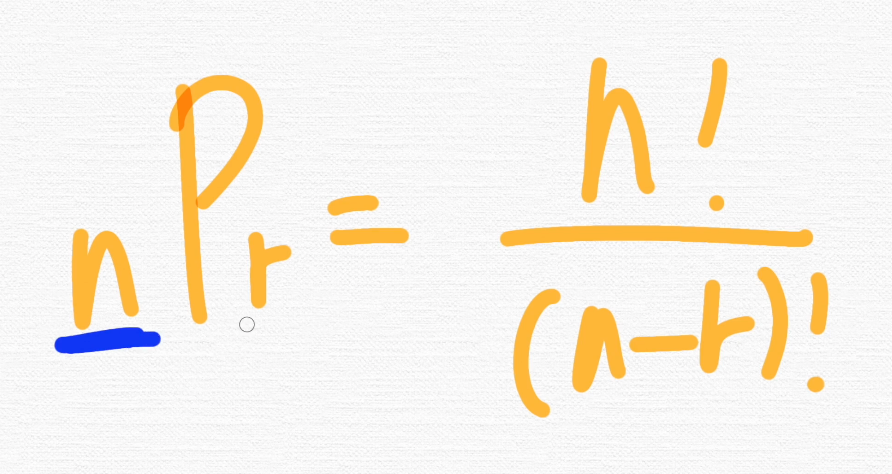 nPr = n! / (n-r)!